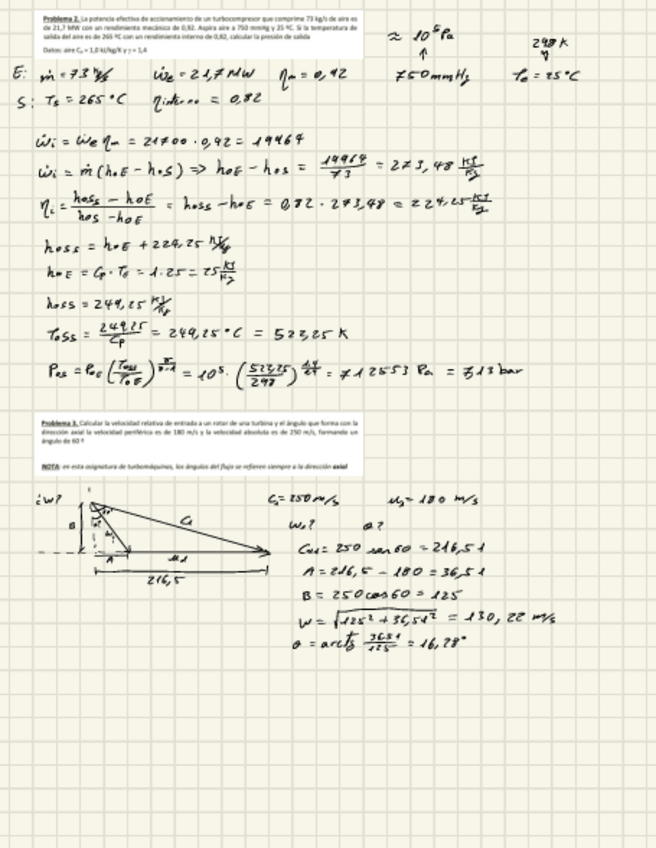 Problema 2. La potencia efectiva de accionamiento de un turbocompresor que comprime 73 kg/s de aire es
de 21,7 MW con un rendimiento mecánico de 0,92. Aspira aire a 750 mmHg y 25 ºC. Si la temperatura de
salida del aire es de 265 ºC con un rendimiento interno de 0,82, calcular la presión de salida
Datos: aire Cp = 1,0 kJ/kg/K y γ = 1,4
≈ 10⁵ Pa
↑
750 mmHg
298 K
Te = 25°C
E: ṁ = 73 kg/s ẇe = 21,7 MW ηm = 0,92
S: Ts = 265°C ηinterno = 0,82
ẇi = ẇe ηm = 21700 · 0,92 = 19964
ẇi = ṁ (hoE - hoS) => hoE - hos = 19964/73 = 273,48 kJ/kg
ηi = (hoss - hoE)/(hos - hoE) = hoss - hoE = 0,82 · 273,48 = 224,25 kJ/kg
hoss = hoE + 224,25 kJ/kg
hoE = Cp · TE = 1·25 = 25 kJ/kg
hoss = 249,25 kJ/kg
Toss = 249,25/Cp = 249,25°C = 522,25 K
Pos = PoE (Toss/ToE)^(γ/γ-1) = 10⁵ · (522,25/298) = 712553 Pa = 7,13 bar
Problema 3. Calcular la velocidad relativa de entrada a un rotor de una turbina y el ángulo que forma con la
dirección axial la velocidad periférica es de 180 m/s y la velocidad absoluta es de 250 m/s, formando un
ángulo de 60 º
NOTA: en esta asignatura de turbomáquinas, los ángulos del flujo se refieren siempre a la dirección axial
¿W?
B
C1
A
u1
216,5
C1 = 250 m/s u1 = 180 m/s
W1? θ?
Cu1 = 250 sen 60 = 216,51
A = 216,5 - 180 = 36,51
B = 250 cos 60 = 125
W = √(125² + 36,51²) = 130,22 m/s
θ = arctg 36,51/125 = 16,28°